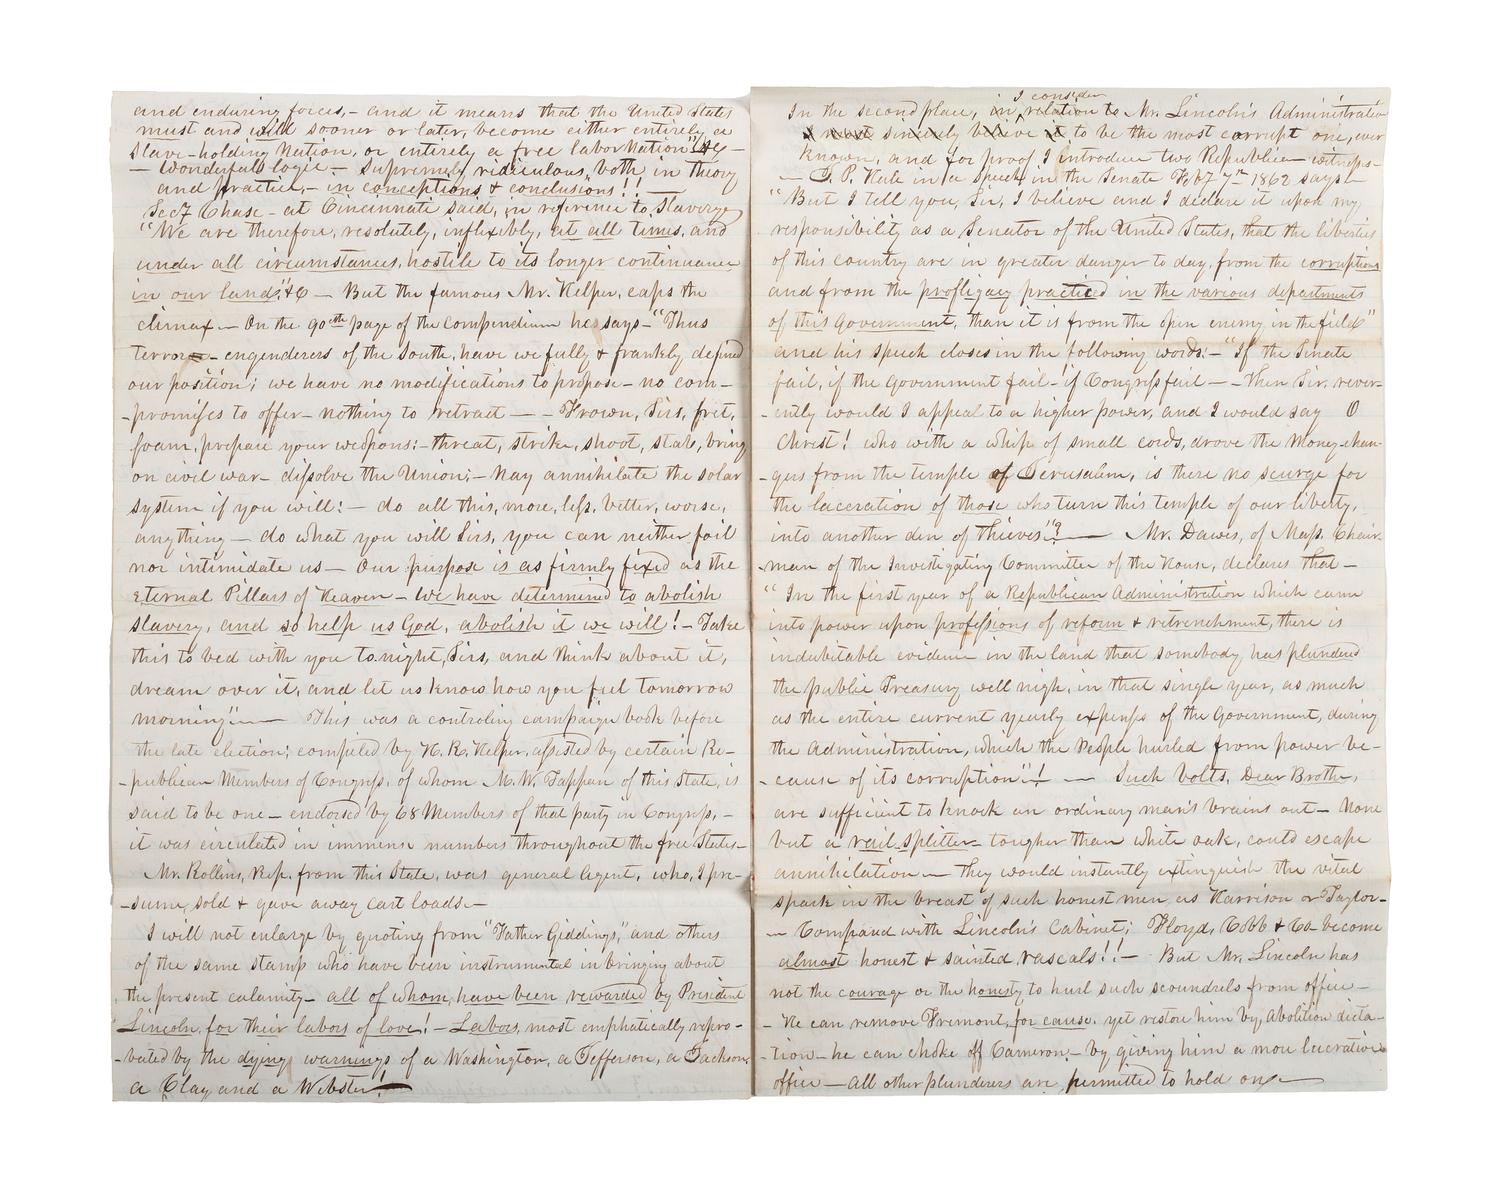 and enduring forces,- and it means that the United States
must and will sooner or later, become either entirely a
slave-holding Nation, or entirely a free labor Nation" &c -
- Wonderful logic - Supremely ridiculous, both in theory
and practice,- in conceptions & conclusions!! -
Secy Chase - at Cincinnati said, in reference to Slavery,
"We are therefore, resolutely, inflexibly, at all times, and
under all circumstances, hostile to its longer continuance
in our land," &c - But the famous Mr. Helper, caps the
climax - On the 90th page of the Compendium he says - "Thus
terror - engenderers of the South, have we fully & frankly defined
our position; we have no modifications to propose - no com-
-promises to offer - nothing to retract - - Frown, Sirs, fret,
foam, prepare your weapons: - threat, strike, shoot, stab, bring
on civil war - dissolve the Union; - Nay annihilate the solar
system if you will! - do all this, more, less, better, worse,
anything - do what you will Sirs, you can neither foil
nor intimidate us - Our purpose is as firmly fixed as the
Eternal Pillars of Heaven - we have determined to abolish
slavery, and so help us God, abolish it we will! - Take
this to bed with you to night, Sirs, and think about it,
dream over it, and let us know how you feel tomorrow
morning" - This was a controling campaign book before
the late election; compiled by H. R. Helper, assisted by certain Re-
-publican Members of Congress, of whom M. W. Tappan of this State, is
said to be one - endorsed by 68 Members of that party in Congress, -
it was circulated in immense numbers throughout the free States -
Mr. Rollins, Rep. from this State, was general Agent, who, I pre-
-sume, sold & gave away cart loads. -
I will not enlarge by quoting from "Father Giddings," and others
of the same stamp who have been instrumental in bringing about
the present calamity - all of whom, have been rewarded by President
Lincoln, for their labors of love! - Labors, most emphatically repro-
-bated by the dying warnings of a Washington, a Jefferson, a Jackson,
a Clay and a Webster! -
I consider
In the second place, in relation to Mr. Lincoln's Administration
I must sincerely believe it to be the most corrupt one, ever
known, and for proof I introduce two Republican witness-
- J. P. Hale in a Speech in the Senate Feby 7th 1862 says -
"But I tell you, Sir, I believe and I declare it upon my
responsibility as a Senator of the United States, that the liberties
of this country are in greater danger to day, from the corruptions
and from the profligacy practiced in the various departments
of this Government, than it is from the open enemy in the field"
and his speech closes in the following words: - "If the Senate
fail, if the Government fail - if Congress fail - - Then Sir, rever-
-ently would I appeal to a higher power, and I would say O
Christ! who with a whip of small cords, drove the Money-chan-
-gers from the temple of Jerusalem, is there no scurge for
the laceration of those who turn this temple of our liberty,
into another den of thieves"? - Mr. Dawes, of Mass. Chair-
-man of the Investigating Committee of the House, declares that -
"In the first year of a Republican Administration which came
into power upon professions of reform & retrenchment, there is
indubitable evidence in the land that somebody has plundered
the public Treasury well nigh, in that single year, as much
as the entire current yearly expenses of the Government, during
the Administration, which the People hurled from power be-
-cause of its corruption"! - Such bolts, Dear Brother,
are sufficient to knock an ordinary man's brains out - None
but a rail splitter - tougher than white oak, could escape
annihilation - They would instantly extinguish the vital
spark in the breast of such honest men as Harrison or Taylor -
- Compared with Lincoln's Cabinet; Floyd, Cobb & Co become
almost honest & sainted rascals!! - But Mr. Lincoln has
not the courage or the honesty to hurl such scoundrels from office -
- He can remove Fremont, for cause, yet restore him by Abolition dicta-
-tion - he can choke off Cameron, - by giving him a more lucrative
office - all other plunderers are permitted to hold on. -